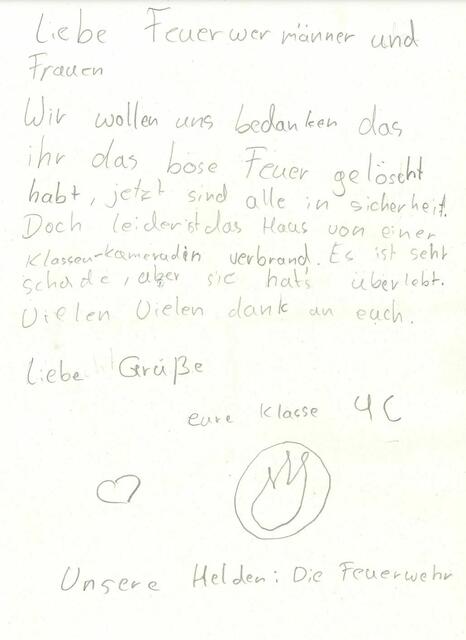 Liebe Feuerwermänner und
Frauen
Wir wollen uns bedanken das
ihr das böse Feuer gelöscht
habt, jetzt sind alle in sicherheit.
Doch leider ist das Haus von einer
Klassen-kameradin verbrand. Es ist sehr
schade, aber sie hat's überlebt.
Vielen Vielen dank an euch.
Liebe Grüße
eure Klasse 4C
Unsere Helden: Die Feuerwehr